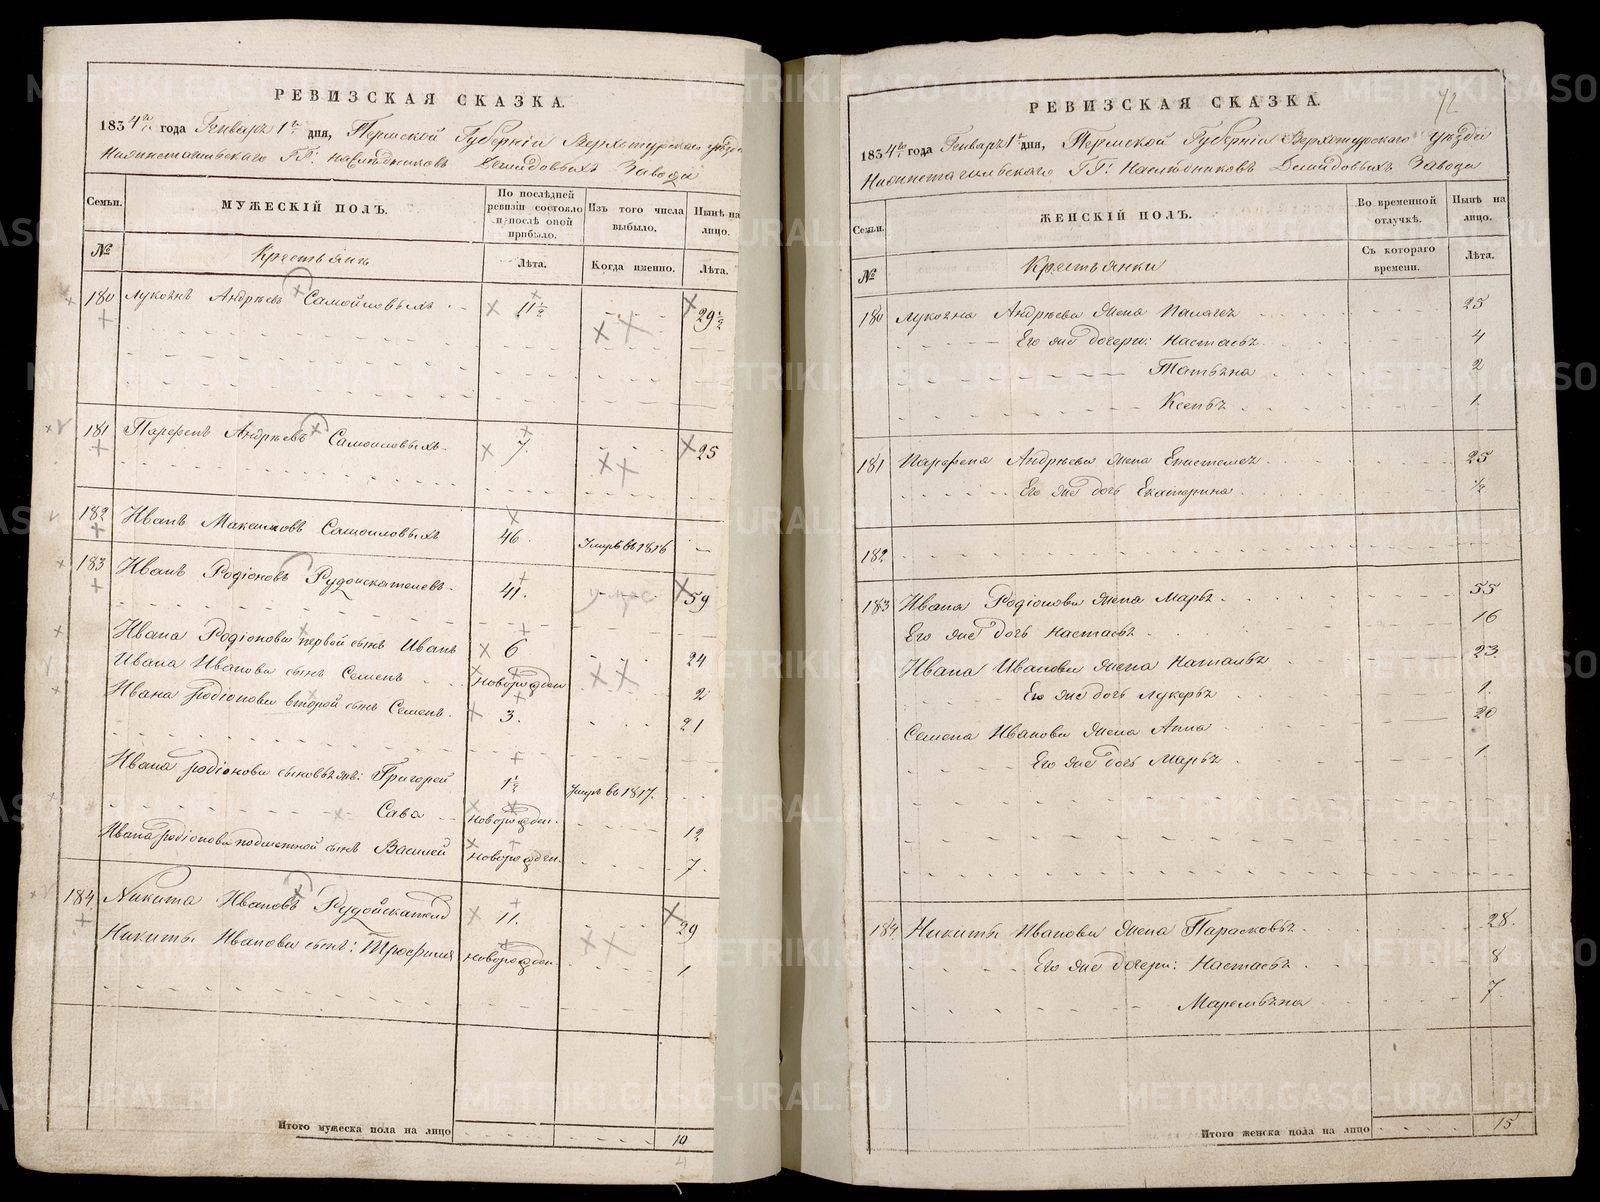 РЕВИЗСКАЯ СКАЗКА.
1834го года Генваря 1го дня, Пермской Губерніи Верхотурскаго уѣзда
Нижнетагильскаго ГГ: наслѣдниковъ Демидовыхъ Завода
Семьи.
МУЖЕСКІЙ ПОЛЪ.
По послѣдней ревизіи состояло и послѣ оной прибыло.
Изъ того числа выбыло.
Нынѣ на лицо.
№
Крестьянъ
Лѣта.
Когда именно.
Лѣта.
180 Лукоянъ Андрѣевъ Самойловыхъ 11½ 29½
181 Парфенъ Андрѣевъ Самоиловыхъ 7 25
182 Иванъ Максимовъ Самоиловыхъ 46 Умре въ 1816
183 Иванъ Родіоновъ Рудоискателевъ 41 59
Ивана Родіонова первой сынъ Иванъ 6 24
Ивана Иванова сынъ Семенъ новорожден 2
Ивана родіонова второй сынъ Семенъ 3. 21
Ивана родіонова сыновья: Григорей 1½ Умре въ 1817.
Сава новорожден. 12
Ивана родіонова сынъ Василей новорожден. 7
184 Никита Ивановъ Рудоискател 11. 29
Никиты Иванова сынъ: новорожден. 1
Итого мужеска пола на лицо 10
4
72
РЕВИЗСКАЯ СКАЗКА.
1834го года Генваря 1го дня, Пермской Губерніи Верхотурскаго уѣзда
Нижнетагильскаго ГГ: Наслѣдниковъ Демидовыхъ Завода
Семьи.
ЖЕНСКІЙ ПОЛЪ.
Во временной отлучкѣ.
Нынѣ на лицо.
№
Крестьянки
Съ котораго времени.
Лѣта.
180 Лукояна Андрѣева жена Палагея 25
Его же дочери: Настасья 4
Татьяна 2
Ксенья 1
181 Парфена Андрѣева жена Епистемея 25
Его же дочь Екатерина ½
182
183 Ивана Родіонова жена Марья 55
Его же дочь Настасья 16
Ивана Иванова жена Наталья 23
Его же дочь Лукерья 1
Семена Иванова жена Анна 20
Его же дочь Марья 1
184 Никиты Иванова жена Парасковья 28
Его же дочери: Настасья 8
Маремьяна 7
Итого женска пола на лицо 15
METRIKI.GASO-URAL.RU